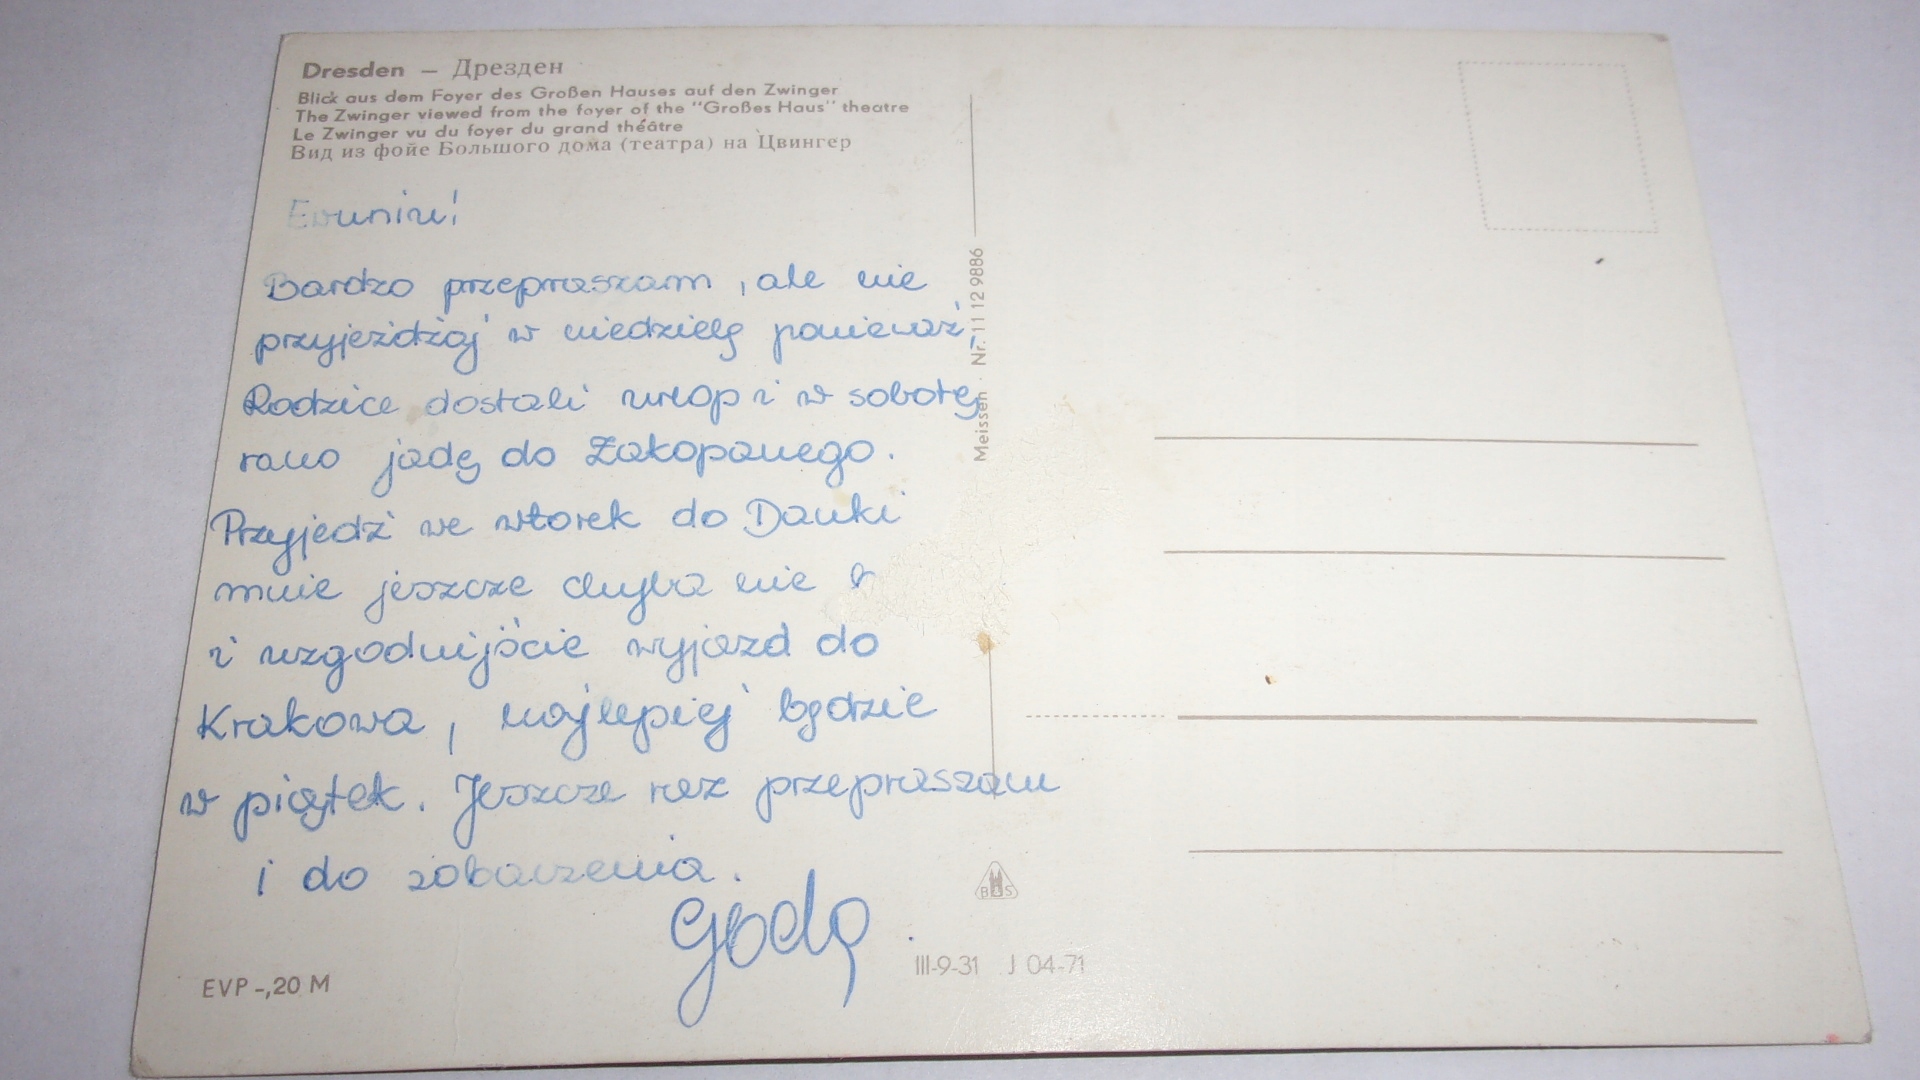 Dresden – Дрезден
Blick aus dem Foyer des Großen Hauses auf den Zwinger
The Zwinger viewed from the foyer of the "Großes Haus" theatre
Le Zwinger vu du foyer du grand théâtre
Вид из фойе Большого дома (театра) на Цвингер
Ewuniu!
Bardzo przepraszam, ale nie
przyjeżdżaj w niedzielę ponieważ,
Rodzice dostali urlop i w sobotę
rano jadę do Zakopanego.
Przyjedź we wtorek do Danki
mnie jeszcze chyba nie
i uzgodnijcie wyjazd do
Krakowa, najlepiej będzie
w piątek. Jeszcze raz przepraszam
i do zobaczenia.
EVP -,20 M
Meissen · Nr. 11 12 9886
B S
III-9-31 J 04-71